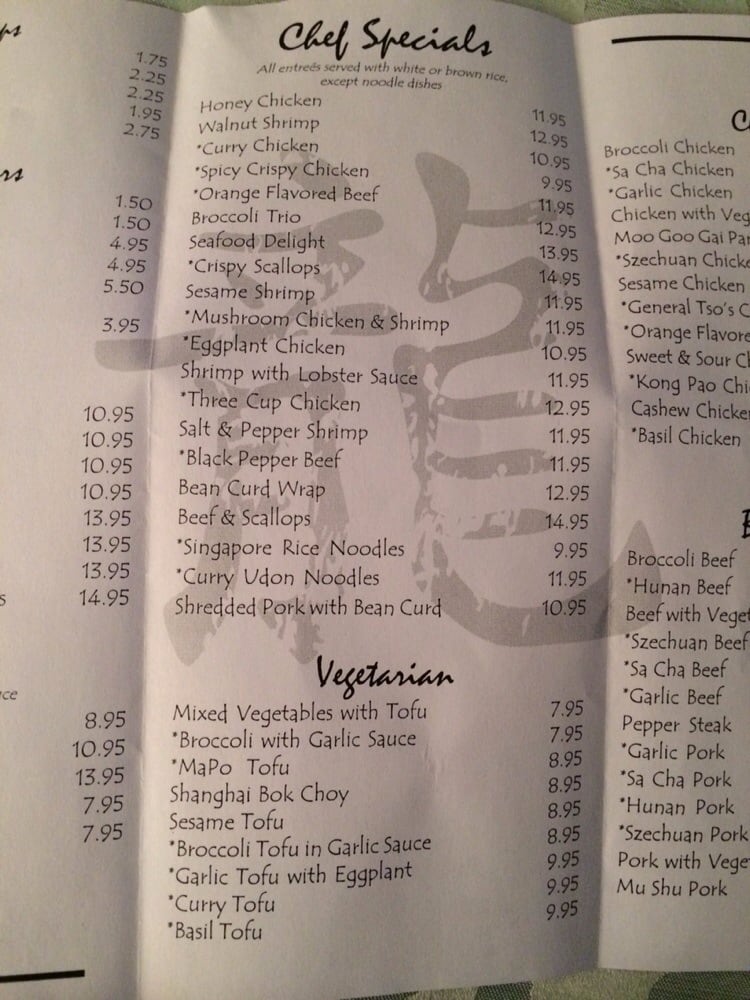 ps
1.75
2.25
2.25
1.95
2.75
rs
1.50
1.50
4.95
4.95
5.50
3.95
10.95
10.95
10.95
10.95
13.95
13.95
13.95
s 14.95
ce
8.95
10.95
13.95
7.95
7.95
Chef Specials
All entreés served with white or brown rice,
except noodle dishes
Honey Chicken 11.95
Walnut Shrimp 12.95
*Curry Chicken 10.95
*Spicy Crispy Chicken 9.95
*Orange Flavored Beef 11.95
Broccoli Trio 12.95
Seafood Delight 13.95
*Crispy Scallops 14.95
Sesame Shrimp 11.95
*Mushroom Chicken & Shrimp 11.95
*Eggplant Chicken 10.95
Shrimp with Lobster Sauce 11.95
*Three Cup Chicken 12.95
Salt & Pepper Shrimp 11.95
*Black Pepper Beef 11.95
Bean Curd Wrap 12.95
Beef & Scallops 14.95
*Singapore Rice Noodles 9.95
*Curry Udon Noodles 11.95
Shredded Pork with Bean Curd 10.95
龍
Vegetarian
Mixed Vegetables with Tofu 7.95
*Broccoli with Garlic Sauce 7.95
*MaPo Tofu 8.95
Shanghai Bok Choy 8.95
Sesame Tofu 8.95
*Broccoli Tofu in Garlic Sauce 8.95
*Garlic Tofu with Eggplant 9.95
*Curry Tofu 9.95
*Basil Tofu 9.95
C
Broccoli Chicken
*Sa Cha Chicken
*Garlic Chicken
Chicken with Veg
Moo Goo Gai Pa
*Szechuan Chicke
Sesame Chicken
*General Tso's C
*Orange Flavore
Sweet & Sour Ch
*Kong Pao Chi
Cashew Chicke
*Basil Chicken
B
Broccoli Beef
*Hunan Beef
Beef with Veget
*Szechuan Beef
*Sa Cha Beef
*Garlic Beef
Pepper Steak
*Garlic Pork
*Sa Cha Pork
*Hunan Pork
*Szechuan Pork
Pork with Vege
Mu Shu Pork